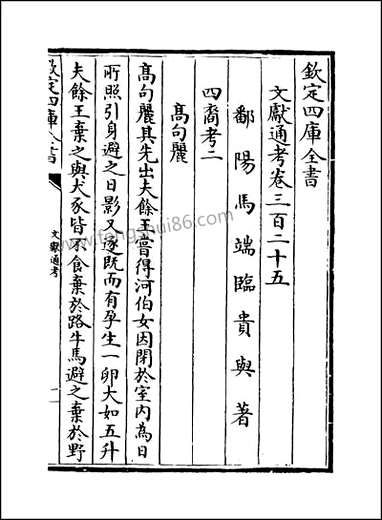 欽定四庫全書
文獻通考卷三百二十五
鄱陽馬端臨貴與著
四裔考二
高句麗
高句麗其先出夫餘王嘗得河伯女因閉於室内為日
所照引身避之日影又逐既而有孕生一卵大如五升
夫餘王棄之與犬豕皆不食棄於路牛馬避之棄於野
欽定四庫全書
文獻通考
一
www.fengshui86.com